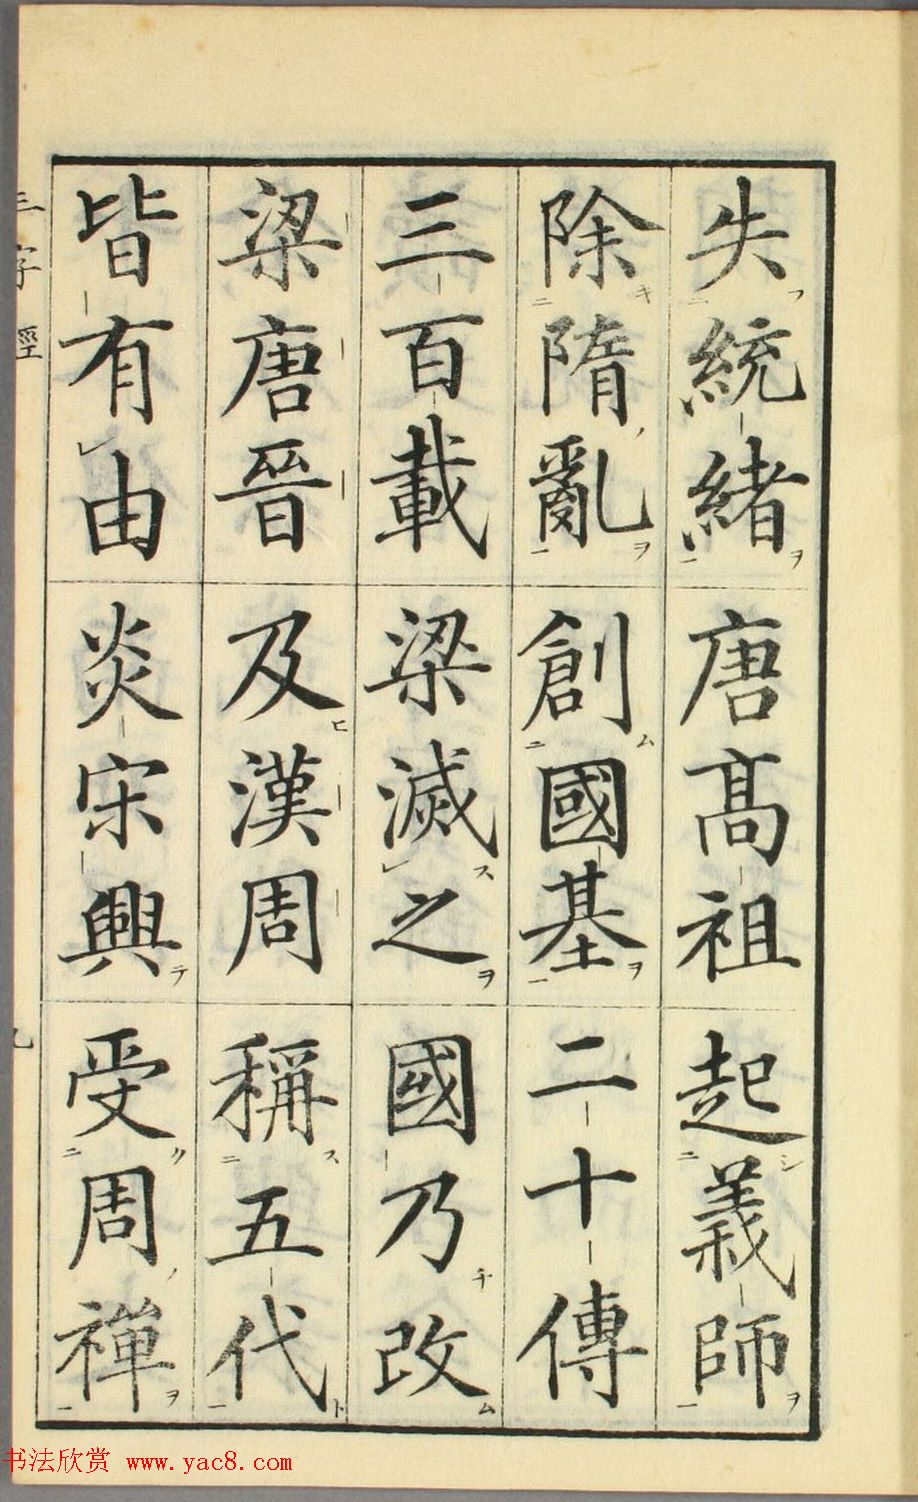 失統緒 唐髙祖 起義師
除隋亂 創國基 二十傳
三百載 梁滅之 國乃改
梁唐晉 及漢周 稱五代
皆有由 炎宋興 受周禪
三字經
九
书法欣赏 www.yac8.com